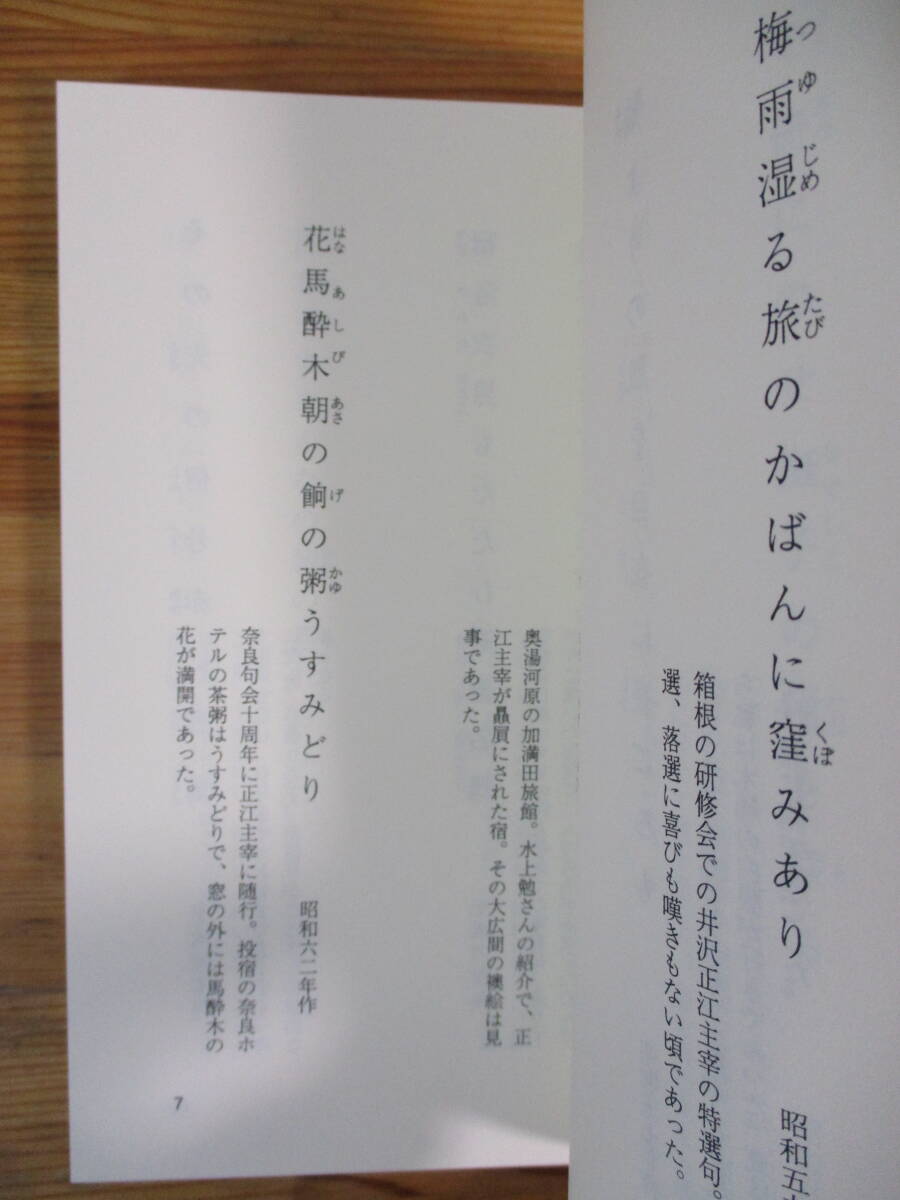 梅雨湿る旅のかばんに窪みあり
つゆじめ
たび
くぼ
昭和五
箱根の研修会での井沢正江主宰の特選句。
選、落選に喜びも嘆きもない頃であった。
奥湯河原の加満田旅館。水上勉さんの紹介で、正
江主宰が贔屓にされた宿。その大広間の襖絵は見
事であった。
花馬酔木朝の餉の粥うすみどり
はなあしび
あさ
げ
かゆ
昭和六二年作
奈良句会十周年に正江主宰に随行。投宿の奈良ホ
テルの茶粥はうすみどりで、窓の外には馬酔木の
花が満開であった。
7